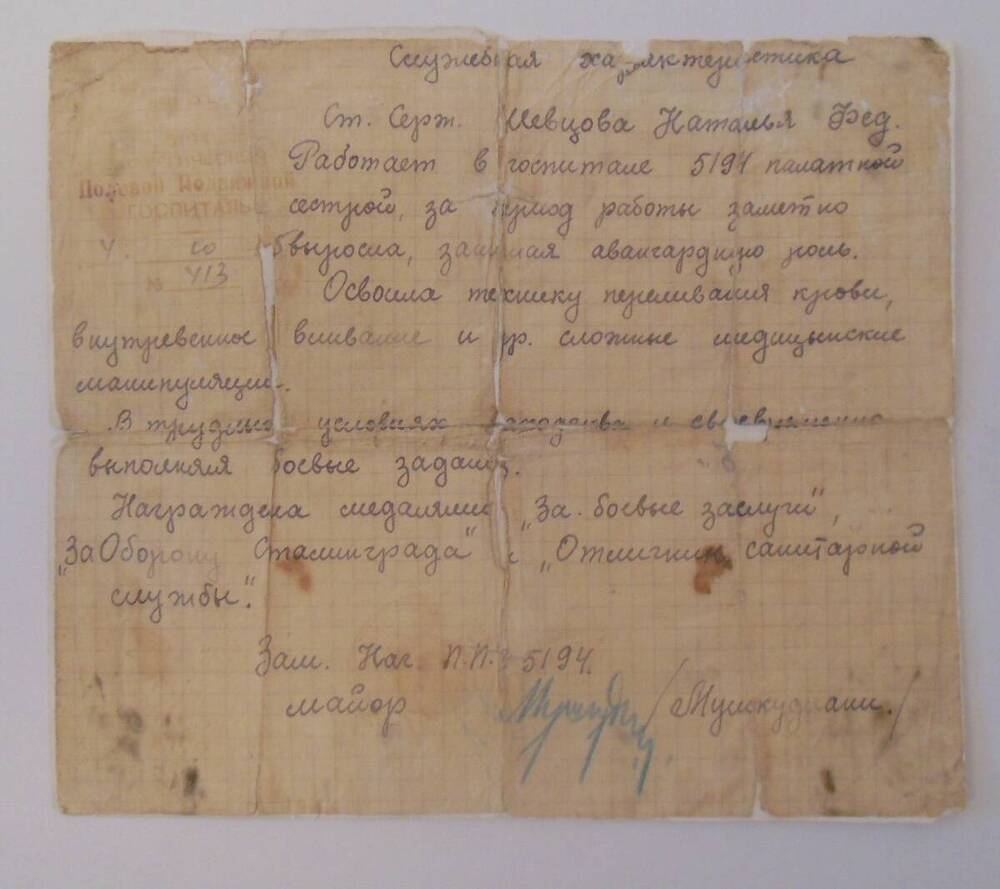 Служебная характеристика
Ст. Серж. Шевцова Наталья Фед.
Работает в госпитале 5194 палатной
Полевой Подвижной
ГОСПИТАЛЬ
сестрой, за период работы заметно
выросла, занимая авангардную роль.
№ 413
Освоила технику переливания крови,
внутревенное вливание и др. сложные медицынские
манипуляции.
В трудных условиях и своевременно
выполняла боевые задания.
Награждена медалями „За боевые заслуги",
„За Оборону Сталинграда" и „Отличник санитарной
службы".
Зам. Нач. П.П.Г 5194.
майор /Мушкудиани./